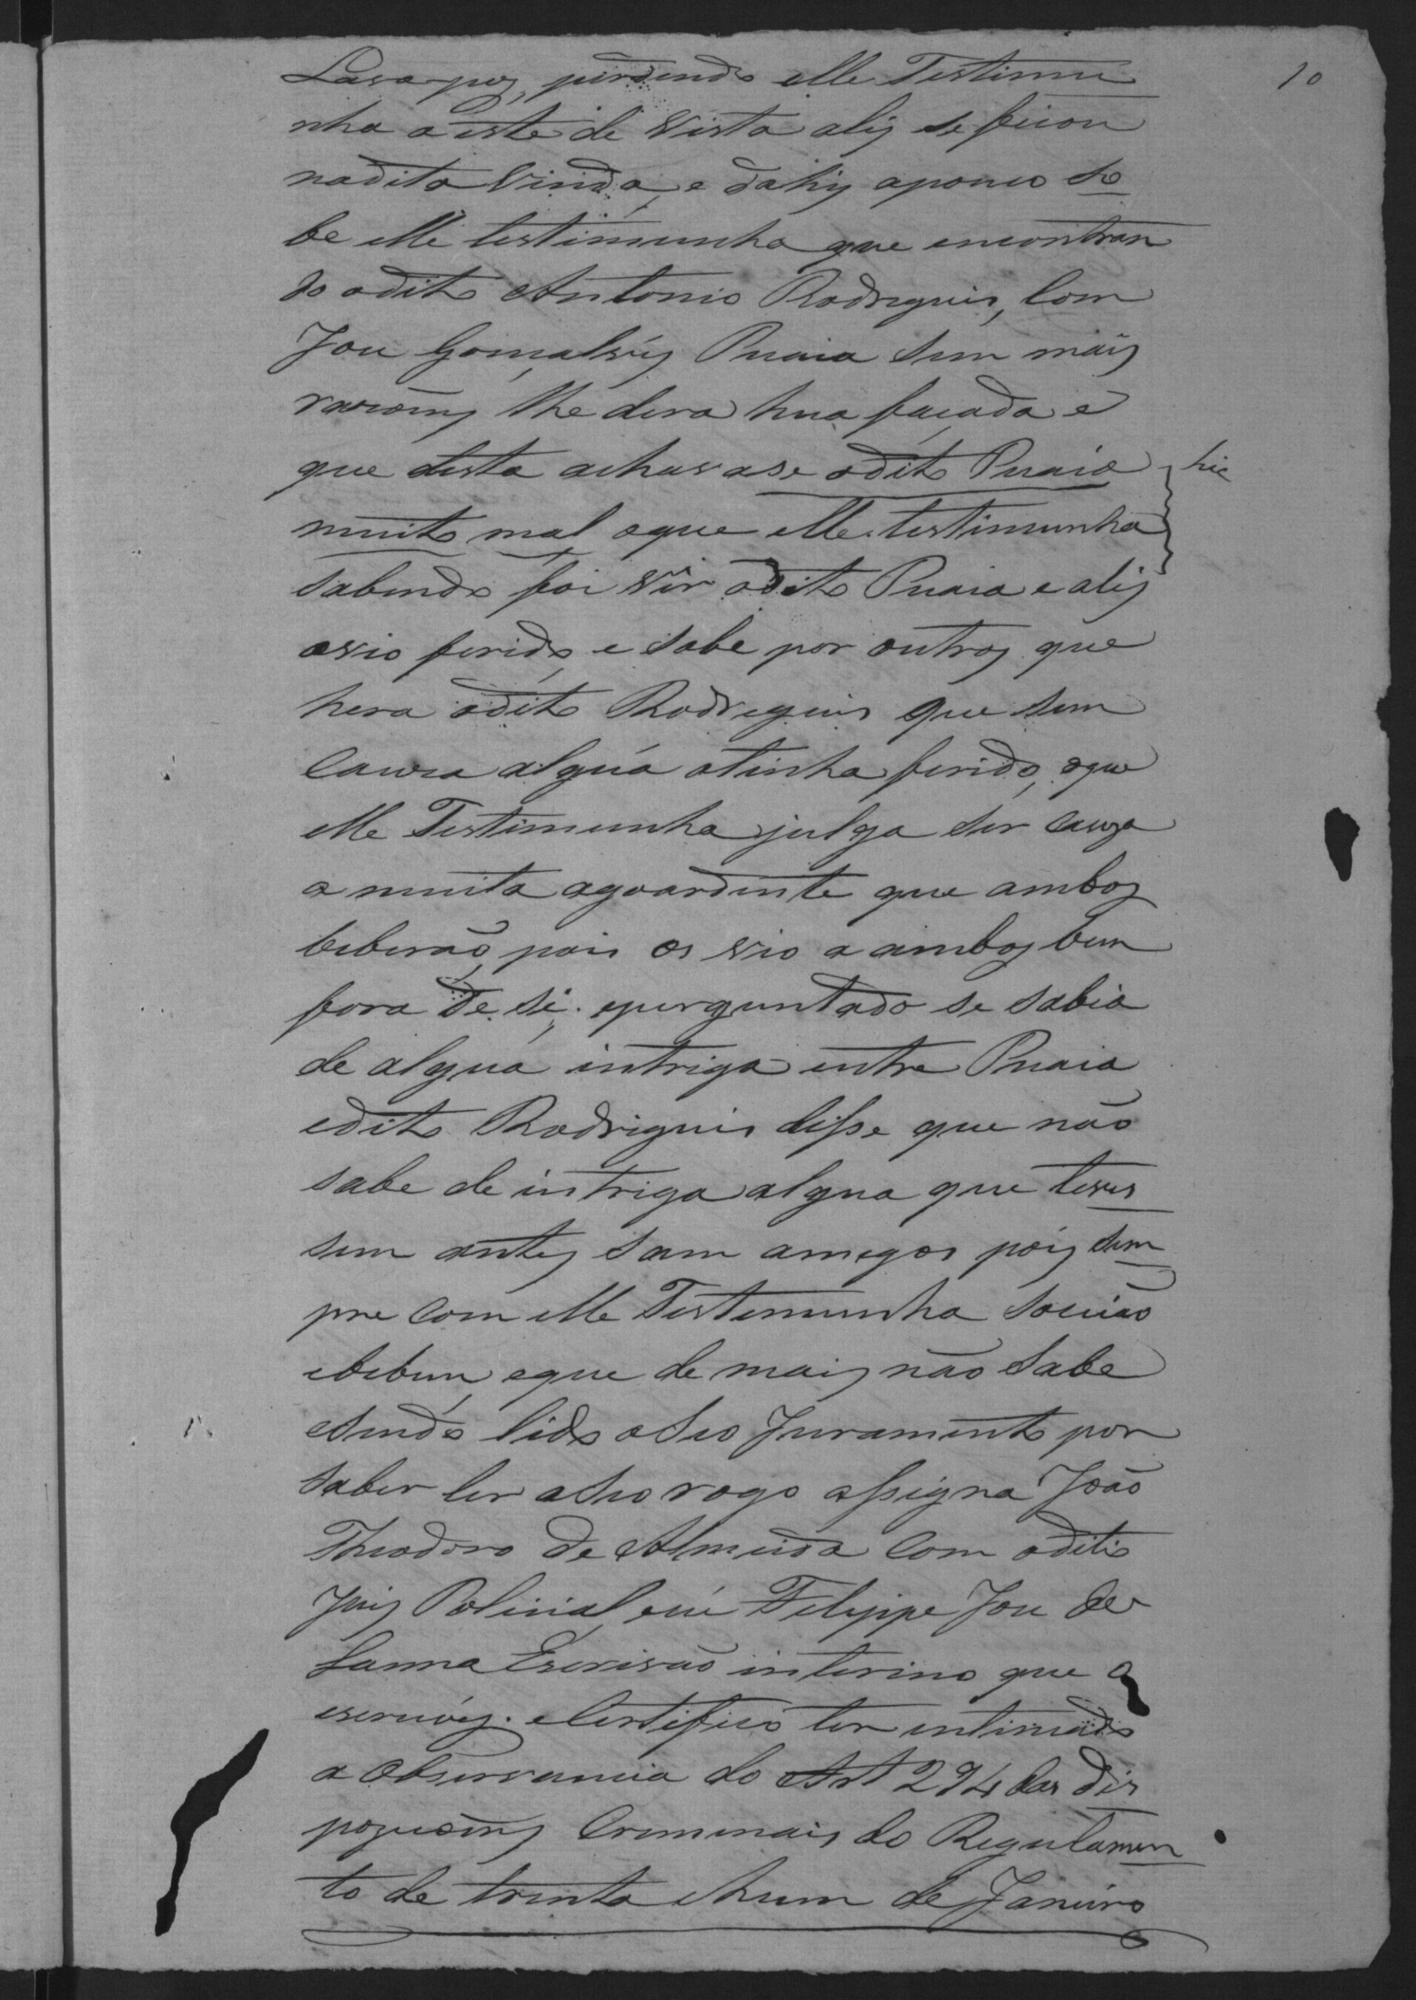 10
perdendo elle Testimu
nha a este de vista aly se ficou
na dita Vinda, e dahy apouco sa
be elle testimunha que encontran
do odito Antonio Rodriguis, com
Joze Gomçalvez Puaia sem mais
razoens lhe dera hua facada e
que desta achavase odito Puaia
hic
muito mal eque elle testimunha
sabendo foi ver odito Puaia e aly
ovio ferido, e sabe por outros que
hera odito Rodreguis que sem
cauza algua otinha ferido, eque
elle Testimunha julga ser cauza
a muita agoardente que ambos
beberão, pois os vio a ambos bem
fora de si. eperguntado se sabia
de algua intriga entre Puaia
edito Rodriguis disse que não
sabe de intriga algua que teves
sem antes sam amegos pois sem
pre com elle Testemunha
ebebem, eque de mais não sabe
esendo lido oseo Juramento por
saber ler aseo rogo assigna João
Theodoro de Almeida com odito
Juiz Policial, eu Felippe Joze de
Escrivão interino que o
escrevy. eCertifico ter intimado
a observancia do Art 294 das dis
pozicoens Criminais do Regulamen
to de trinta ehum de Janeiro